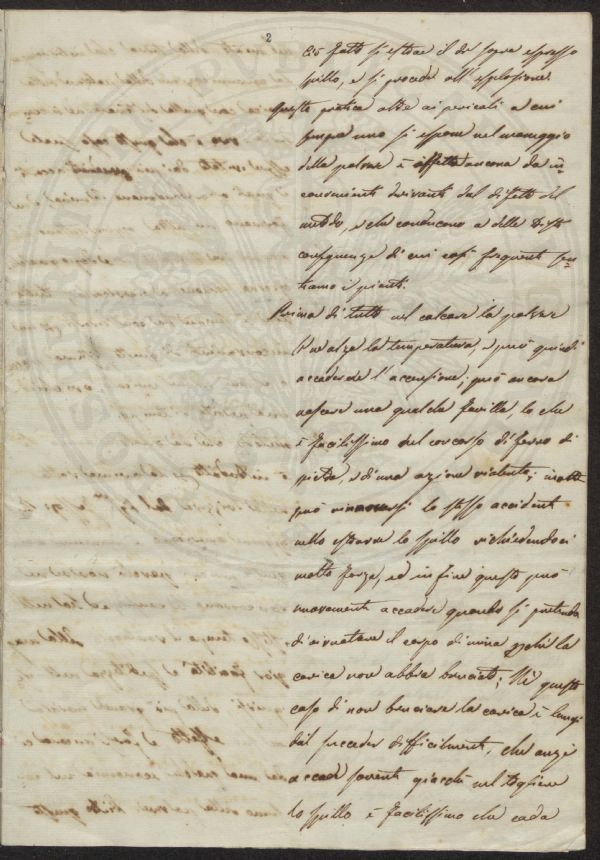 2
Ciò fatto si estrae il di sopra espresso
spillo, e si procede all'esplosione.
Questa pratica oltre ai pericoli a cui
sempre uno si espone nel maneggio
della polvere è affetta ancora da in-
convenienti derivanti dal difetto del
metodo, e che conducono a delle triste
conseguenze di cui così frequenti sen-
tiamo i pianti.
Prima di tutto nel calcare la polvere
s'inalza la temperatura, e può quindi
accadere l'accensione; può ancora
nascere una qualche favilla, lo che
è facilissimo nel concorso di ferro di
pietra, e di una azione violenta; inoltre
può rinnovarsi lo stesso accidente
nello estrarre lo spillo richiedendoci
molta forza, ed in fine questo può
nuovamente accadere quando si pretenda
di rivuotare il corpo di mina perché la
carica non abbia bruciato; Nè questo
caso di non bruciare la carica è lungi
dal succeder difficilmente, che anzi
accade sovente giacchè nel togliere
lo spillo è facilissimo che cada